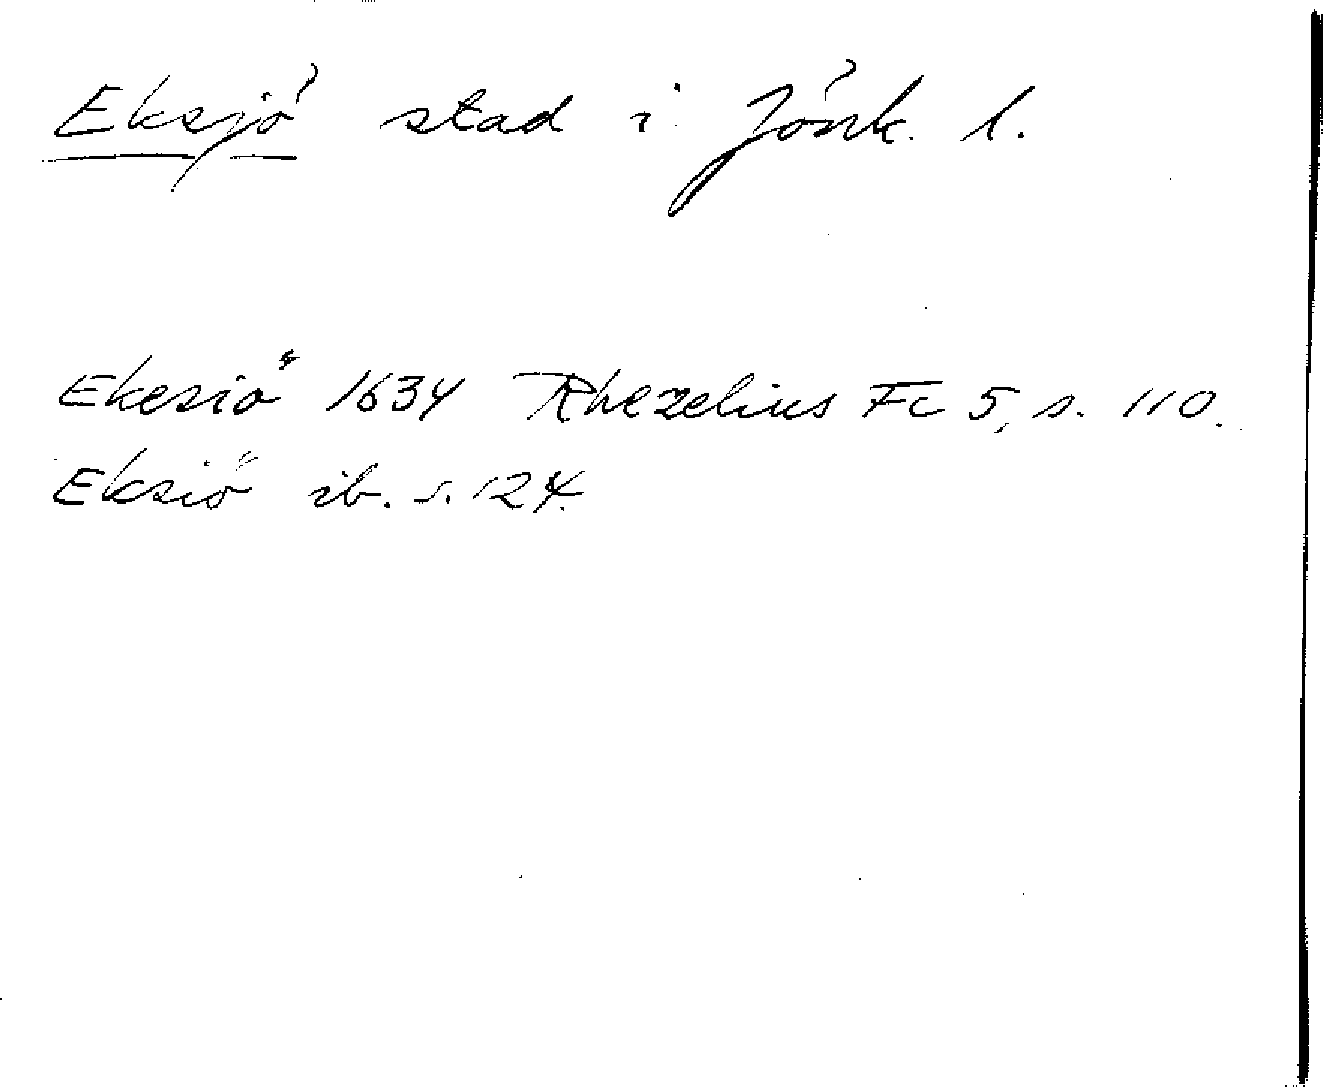 Eksjö stad i Jönk. l.
Ekesiö 1634 Rhezelius Fc 5, s. 110.
Eksiö ib. s. 124.